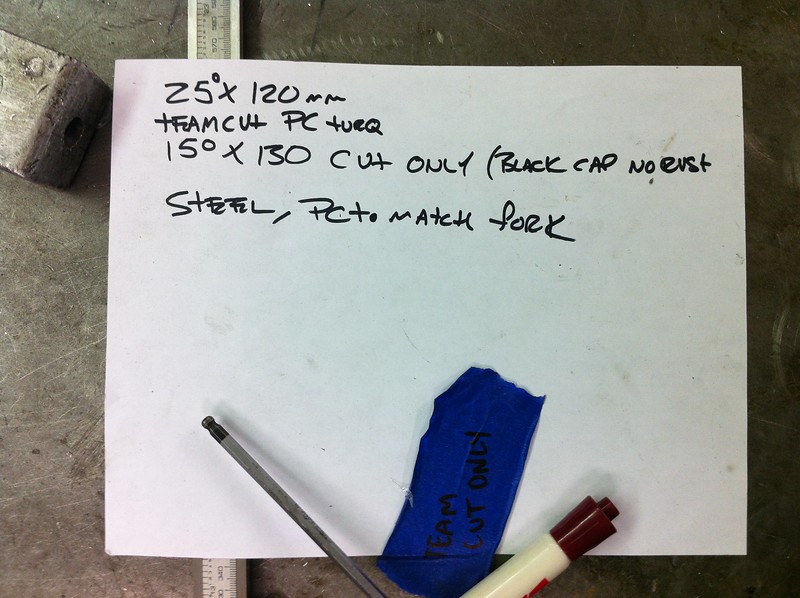 25° X 120 mm
TEAM CUT PC TURQ
15° X 130 CUT ONLY (BLACK CAP NO RUST
STEEL, PC to MATCH fORK
TEAM
CUT ONLY